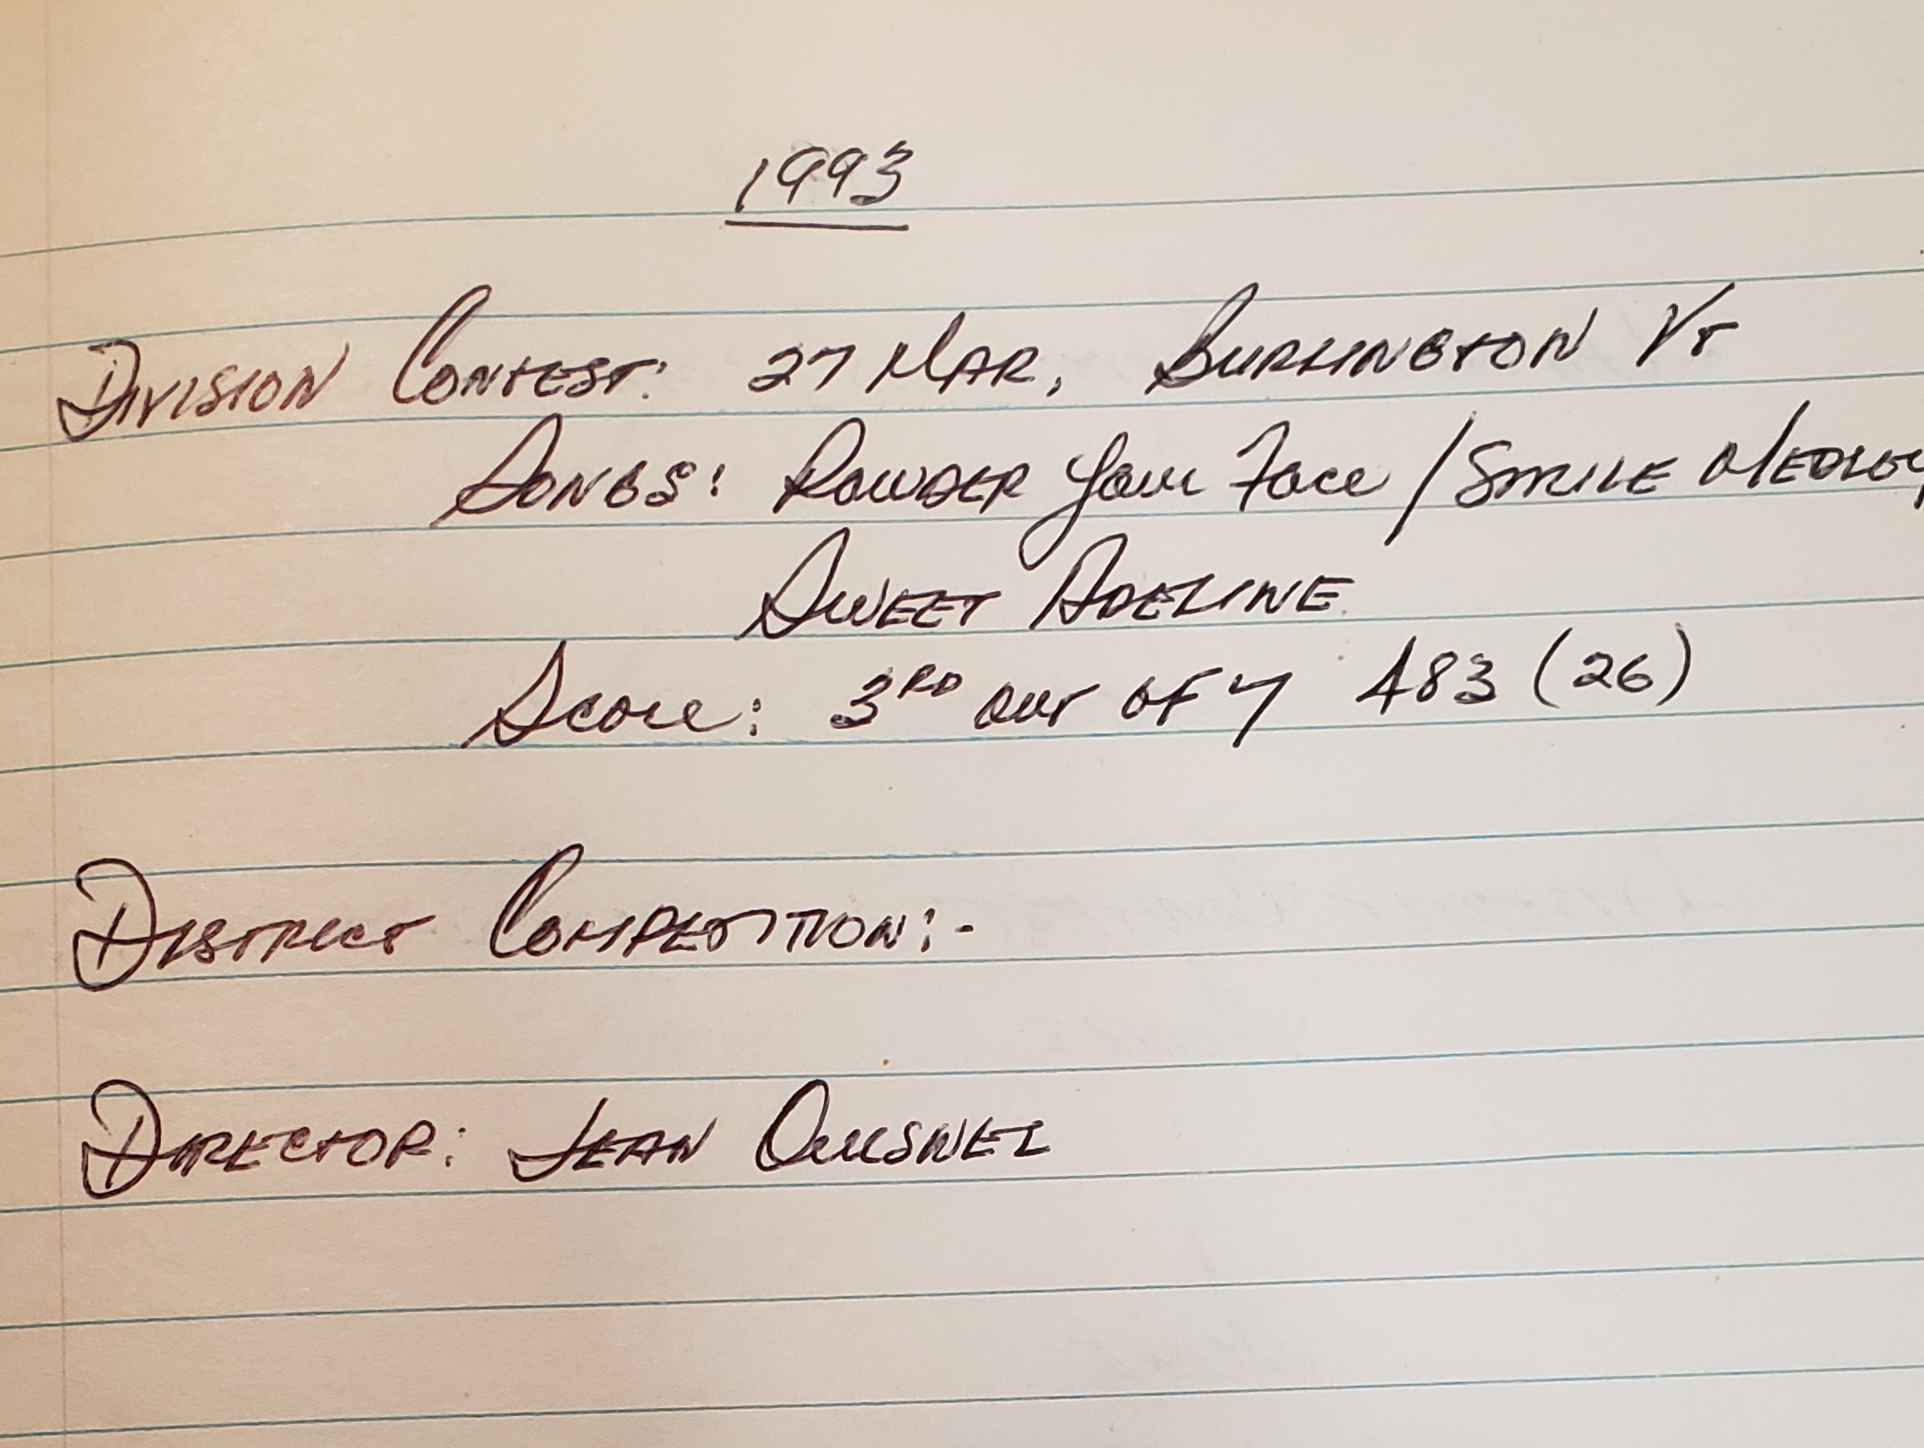 1993
DIVISION CONTEST: 27 MAR, BURLINGTON VT
SONGS: POWDER Your Face / SMILE MEDLEY
SWEET ADELINE
Score: 3RD OUT OF 7 483 (26)
DISTRICT COMPETITION:-
DIRECTOR: JEAN